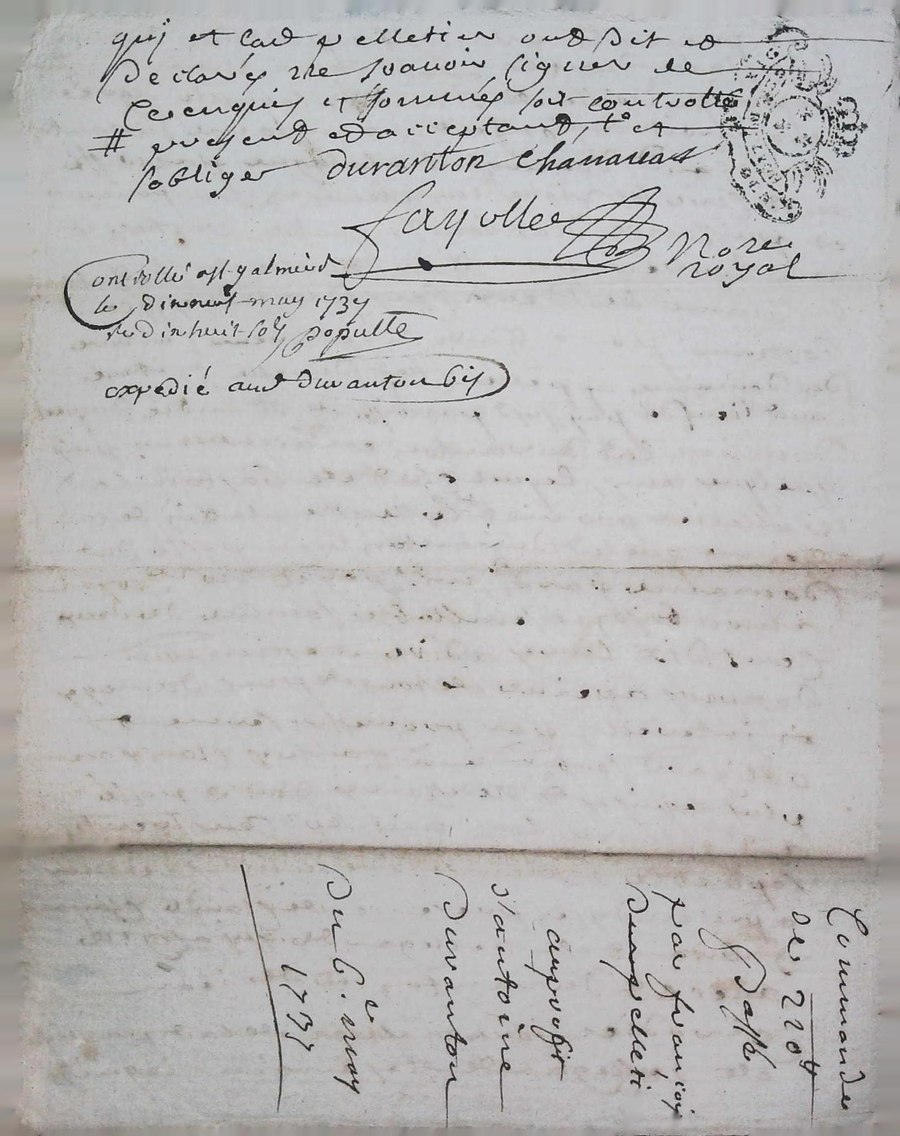 quj et lad pelletier ont dit et
declaré ne scavoir signer de
ce enquis et sommés soit controllé
# present et acceptant, et
obliger duranton chanauat
fayolle Nore
royal
controllé a st galmier
le dixneuf may 1737
R dixhuit sols populle
expedié aud duranton bis
Commande
de 220tt
passé
par françois
pelleti
au proffit
d'antoine
Duranton
Du 6e may
1737